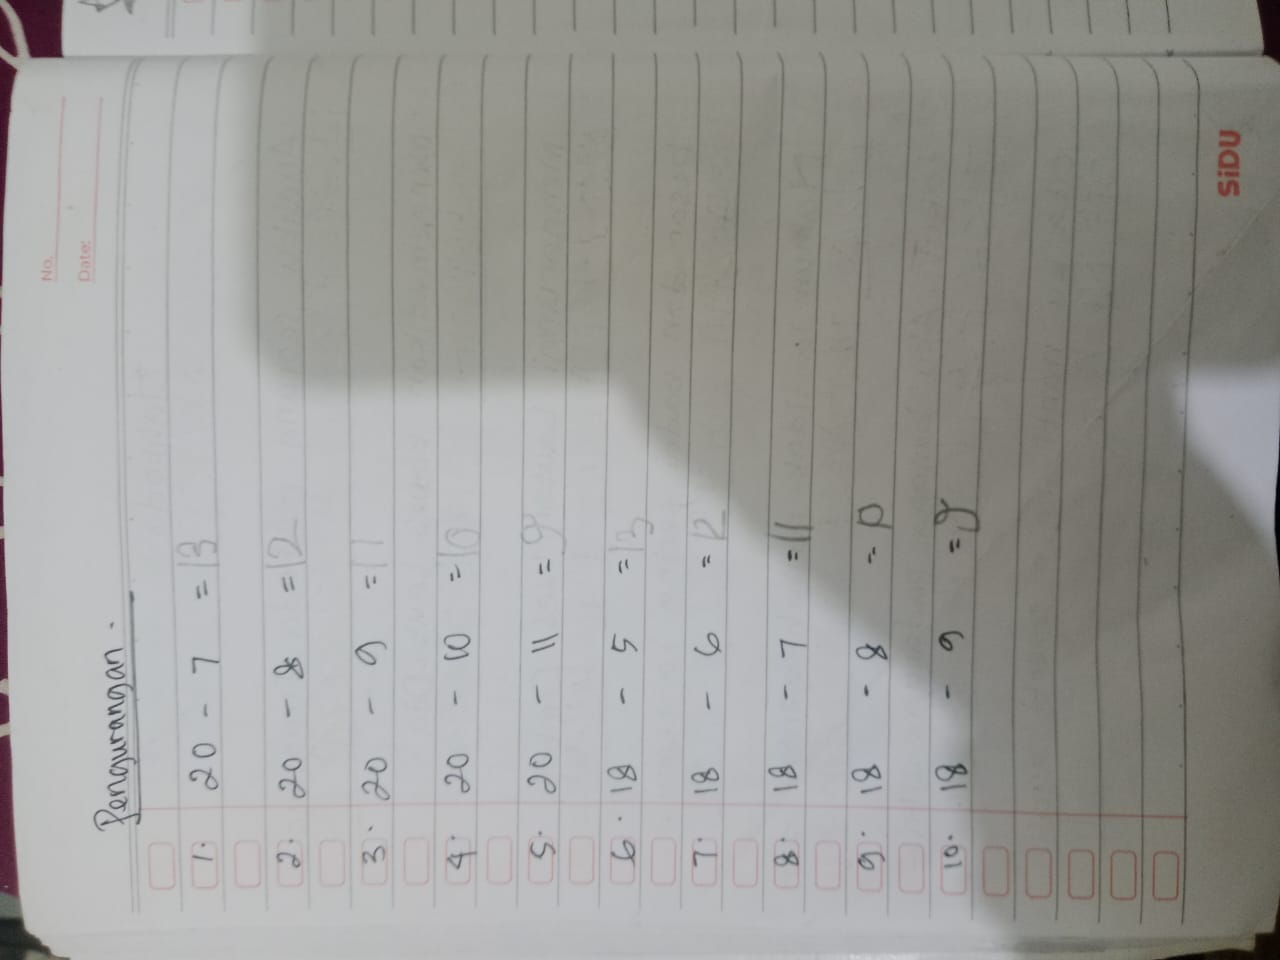 No.
Date:
Pengurangan.
1. 20 - 7 = 13
2. 20 - 8 = 12
3. 20 - 9 = 11
4. 20 - 10 = 10
5. 20 - 11 = 9
6. 18 - 5 = 13
7. 18 - 6 = 12
8. 18 - 7 = 11
9. 18 - 8 = 10
10. 18 - 9 = 9
SiDU